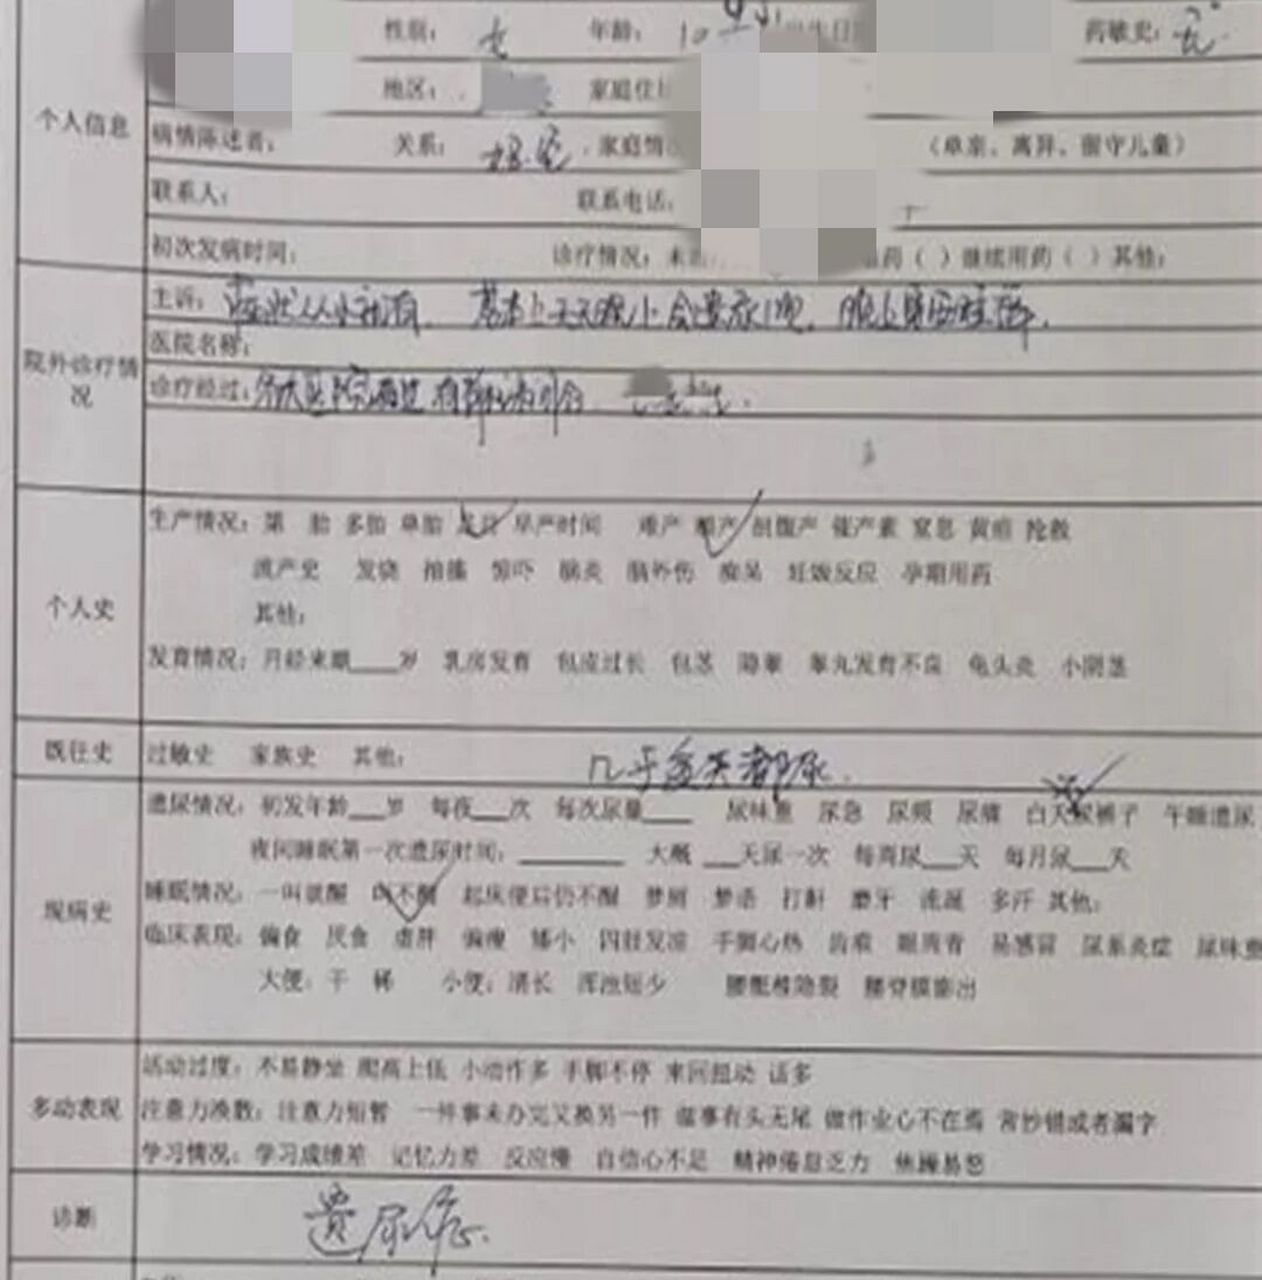 性别: 女 年龄: 10 药敏史: 无
地区: 家庭住
个人信息
病情陈述者: 关系: 母亲 家庭情 (单亲、离异、留守儿童)
联系人: 联系电话:
初次发病时间: 诊疗情况: 未 药 ( ) 继续用药 ( ) 其他:
主诉: 症状从小就有. 基本上天天晚上会遗尿 晚上
医院名称:
院外诊疗情况
诊疗经过: 各大医院
生产情况: 第 胎 多胎 单胎 足月 早产时间 难产 顺产 剖腹产 催产素 窒息 黄疸 抢救
流产史 发烧 抽搐 惊吓 脑炎 脑外伤 痴呆 妊娠反应 孕期用药
个人史
其他:
发育情况: 月经来潮____岁 乳房发育 包皮过长 包茎 隐睾 睾丸发育不良 龟头炎 小阴茎
既往史 过敏史 家族史 其他: 几乎每天都尿.
遗尿情况: 初发年龄__岁 每夜__次 每次尿量___ 尿味重 尿急 尿频 尿痛 白天尿裤子 午睡遗尿
夜间睡眠第一次遗尿时间: ______ 大概 __天尿一次 每周尿__天 每月尿__天
睡眠情况: 一叫就醒 叫不醒 起床便后仍不醒 梦游 梦语 打鼾 磨牙 流涎 多汗 其他:
现病史
临床表现: 偏食 厌食 虚胖 偏瘦 矮小 四肢发凉 手脚心热 齿痕 眼周青 易感冒 尿系炎症 尿味重
大便: 干 稀 小便: 清长 浑浊短少 腰骶椎隐裂 腰脊膜膨出
活动过度: 不易静坐 爬高上低 小动作多 手脚不停 来回扭动 话多
多动表现
注意力涣散: 注意力短暂 一件事未办完又换另一件 做事有头无尾 做作业心不在焉 常抄错或者漏字
学习情况: 学习成绩差 记忆力差 反应慢 自信心不足 精神倦怠乏力 焦躁易怒
诊断 遗尿症.